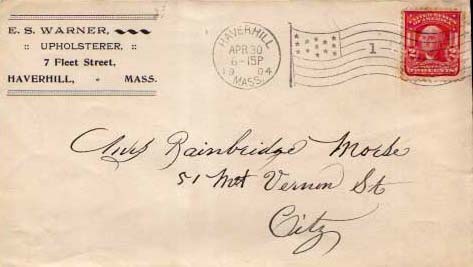 E. S. WARNER,
:: UPHOLSTERER, ::
7 Fleet Street,
HAVERHILL, - MASS.
HAVERHILL
APR 30
6-15P
19 04
MASS.
1
2 2
TWO CENTS
Bainbridge Morse
51 Mt Vernon St
City